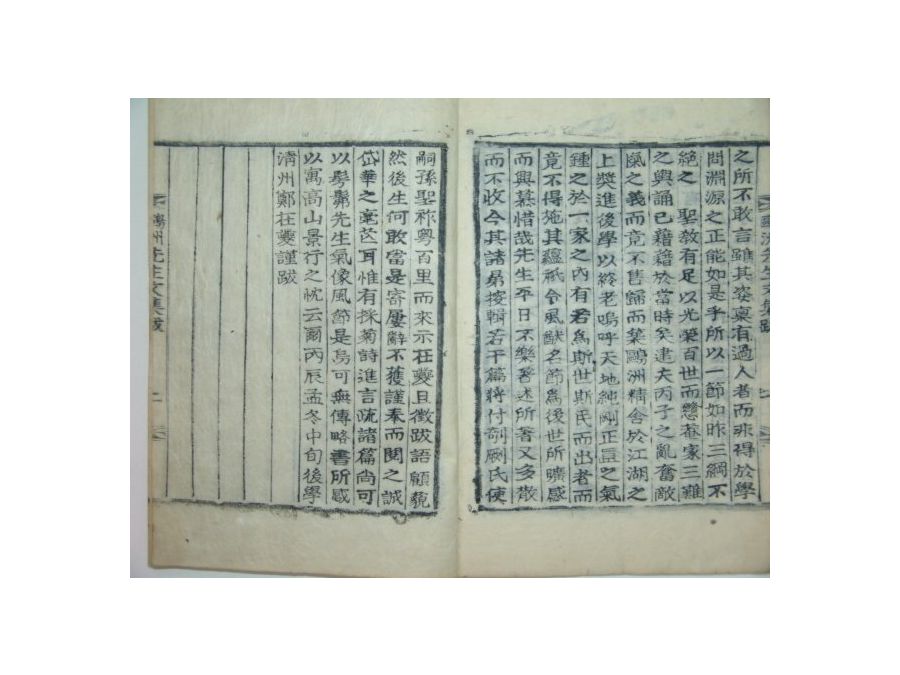 之所不敢言雖其姿稟有過人者而非得於學
問淵源之正能如是乎所以一節如昨三綱不
絶之 聖教有足以光榮百世而戀菴家三難
之輿誦已藉藉於當時矣逮夫丙子之亂奮敵
愾之義而竟不售歸而築鷗洲精舍於江湖之
上奬進後學以終老嗚呼天地純剛正直之氣
鍾之於一家之內有若爲斯世斯民而出者而
竟不得施其蘊秪令風猷名節爲後世所曠感
而興慕惜哉先生平日不樂著述所著又多散
而不收今其諸昜接輯若干篇將付剞劂氏使
嗣孫聖祚粤百里而來示在夔且徵跋語顧藐
然後生何敢當是寄屢辭不獲謹奉而閱之誠
岱華之毫芒耳惟有採菊詩進言疏諸篇尚可
以髣髴先生氣像風節是烏可無傳略書所感
以寓高山景行之忱云爾丙辰孟冬中旬後學
淸州鄭在夔謹跋
鷗洲先生文集跋